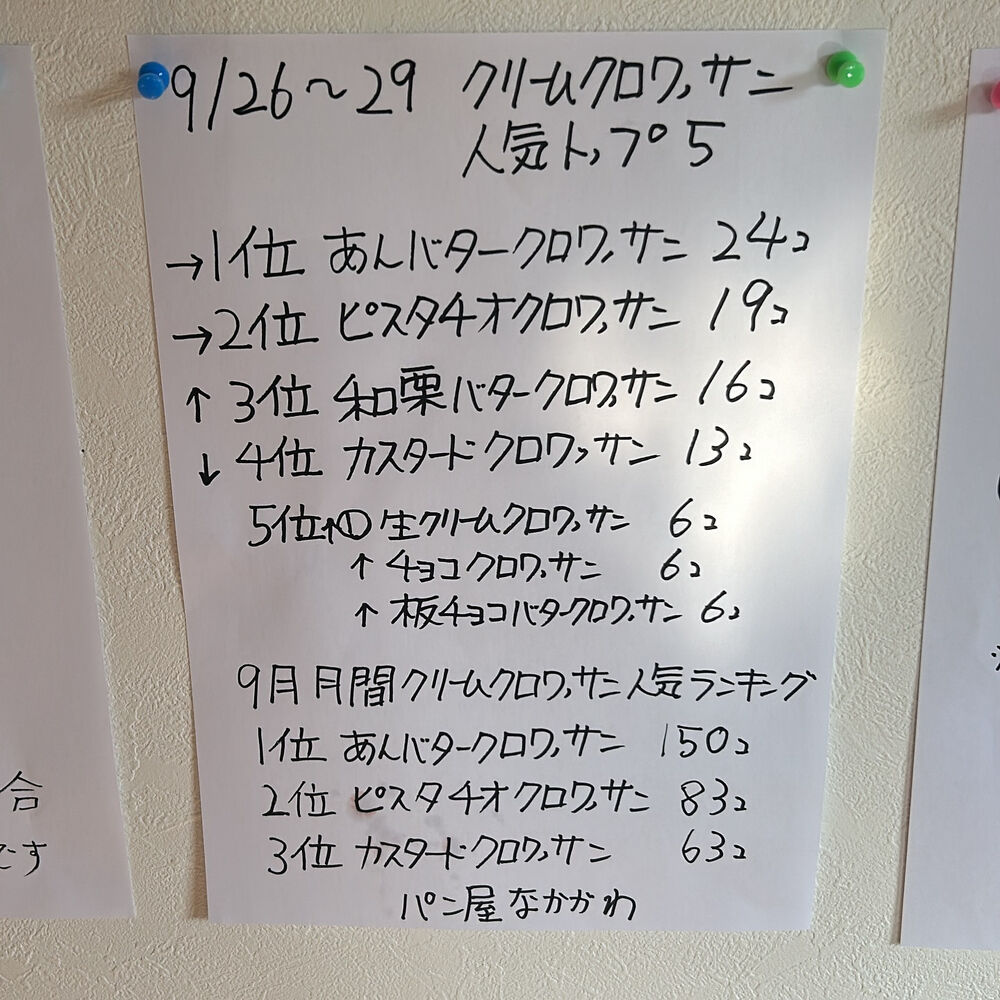 9/26〜29 クリームクロワッサン
人気トップ5
→1位 あんバタークロワッサン 24コ
→2位 ピスタチオクロワッサン 19コ
↑3位 和栗バタークロワッサン 16コ
↓4位 カスタードクロワッサン 13コ
5位↑① 生クリームクロワッサン 6コ
↑チョコクロワッサン 6コ
↑板チョコバタークロワッサン 6コ
9月月間クリームクロワッサン人気ランキング
1位 あんバタークロワッサン 150コ
2位 ピスタチオクロワッサン 83コ
3位 カスタードクロワッサン 63コ
パン屋なかがわ
合
です